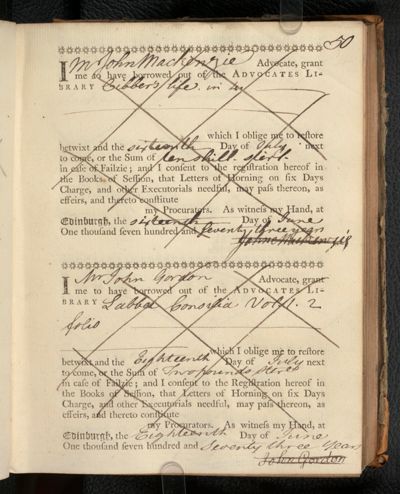 50
I Mr John Mackenzie Advocate, grant
me to have borrowed out of the ADVOCATES LI-
BRARY Cibber's life in
which I oblige me to reſtore
betwixt and the sixteenth Day of July next
to come, or the Sum of ten shill. sterl.
in caſe of Failzie; and I conſent to the regiſtration hereof in
the Books of Seſſion, that Letters of Horning on ſix Days
Charge, and other Executorials needful, may paſs thereon, as
effeirs, and thereto conſtitute
my Procurators. As witneſs my Hand, at
Edinburgh, the sixteenth Day of June
One thouſand ſeven hundred and seventy three years
John Mackenzie
I Mr John Gordon Advocate, grant
me to have borrowed out of the ADVOCATES LI-
BRARY Labbei Concilia Vol. 2
folio
which I oblige me to reſtore
betwixt and the Eighteenth Day of July next
to come, or the Sum of Two pounds
in caſe of Failzie; and I conſent to the Regiſtration hereof in
the Books of Seſſion, that Letters of Horning on ſix Days
Charge, and other Executorials needful, may paſs thereon, as
effeirs, and thereto conſtitute
my Procurators. As witneſs my Hand, at
Edinburgh, the Eighteenth Day of June
One thouſand ſeven hundred and Seventy three Years
John Gordon